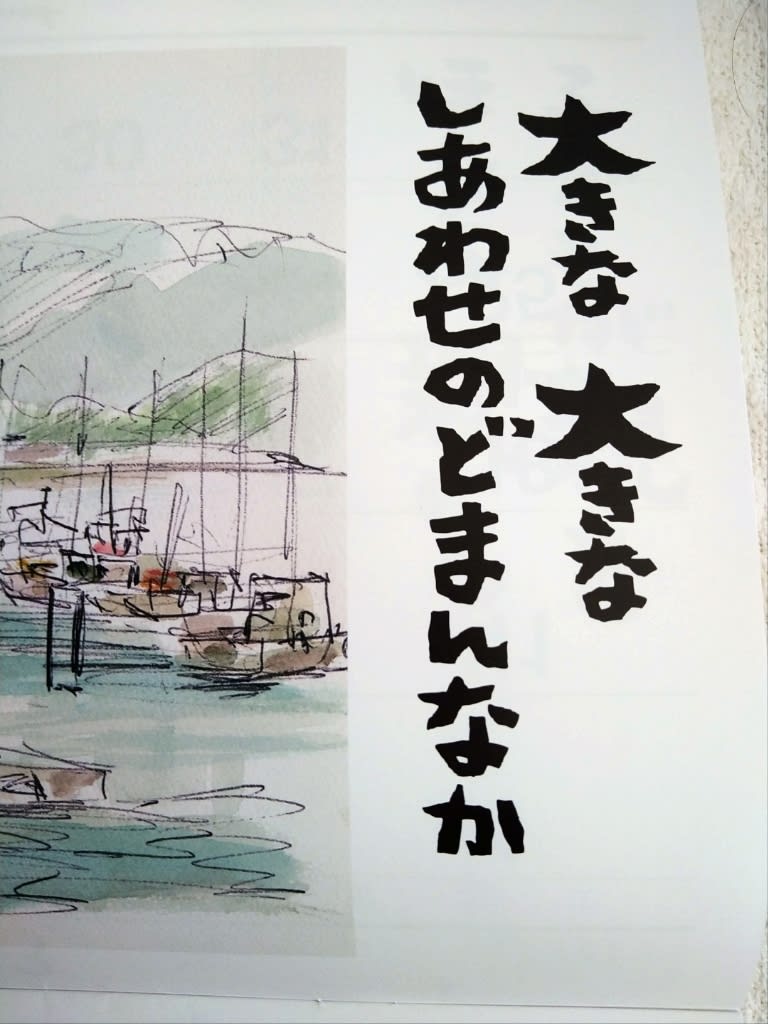 大きな 大きな
しあわせのどまんなか